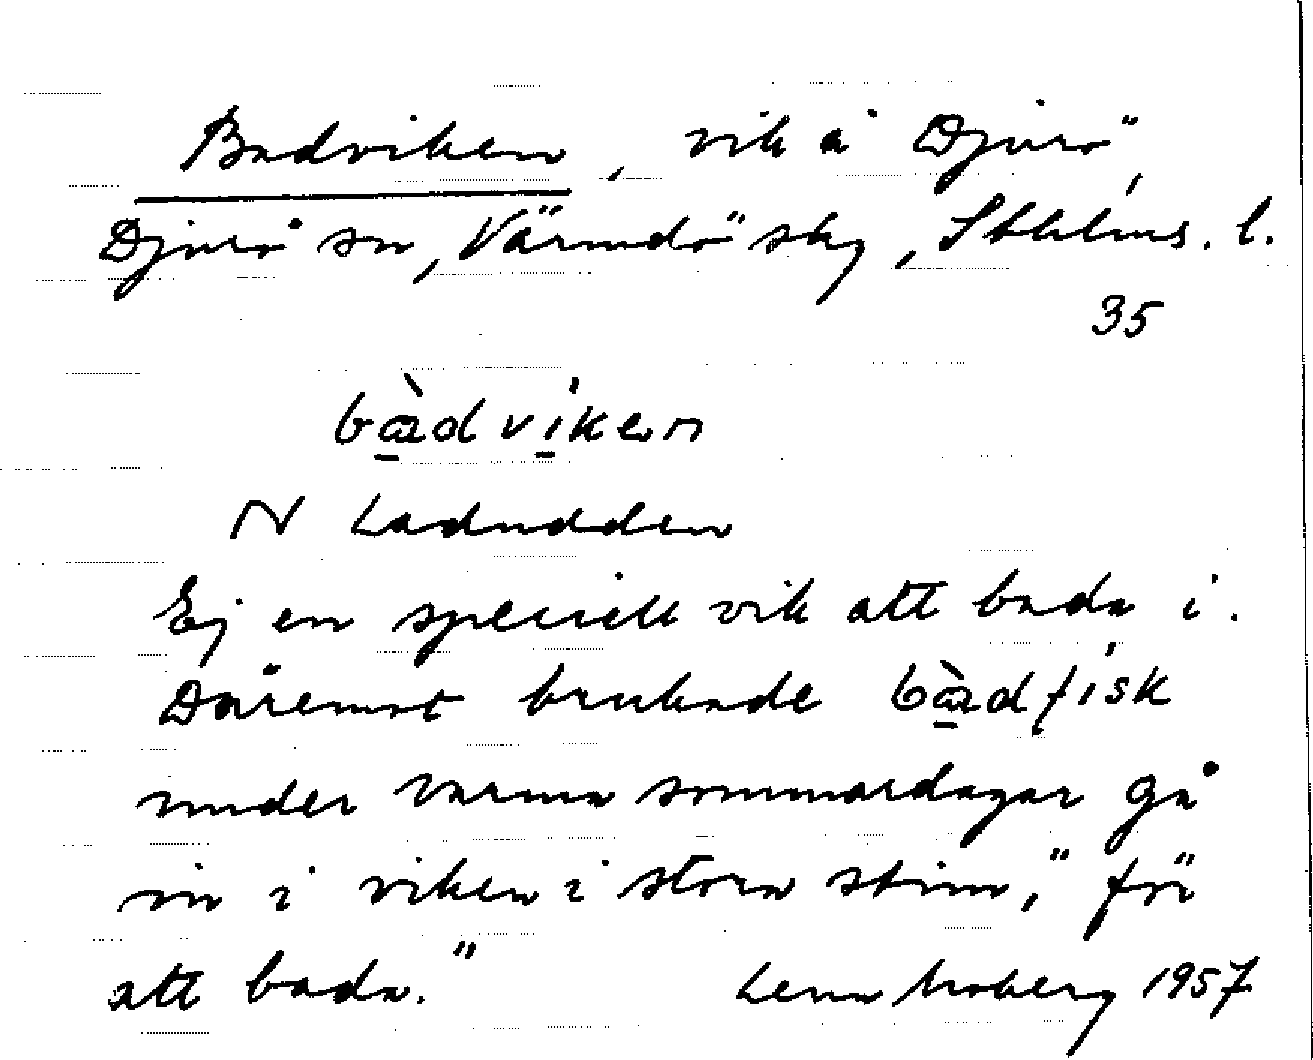 Badviken, vik å Djurö,
Djurö sn, Värmdö sky, Sthlms. l.
35
bàdvíken
N Ladudden
Ej en speciell vik att bada i.
Däremot brukade bàdfísk
under varma sommardagar gå
in i viken i stora stim, "för
att bada."
Lena Moberg 1957